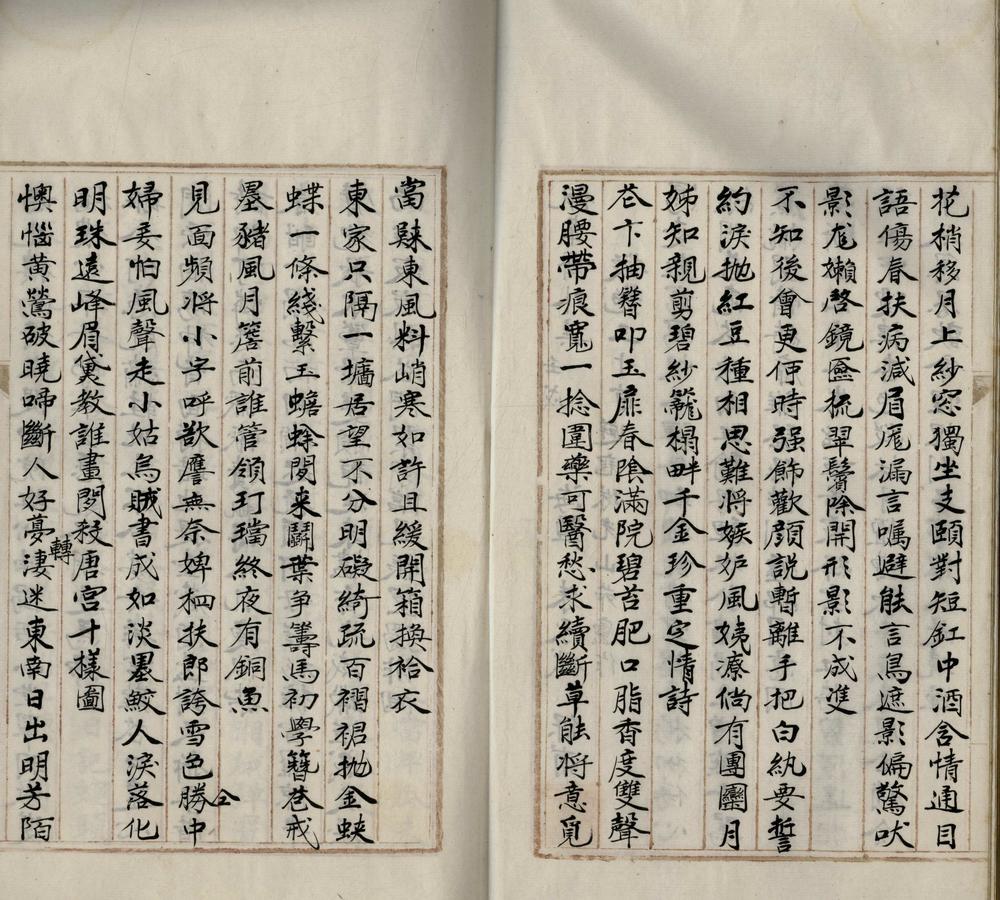 花梢移月上紗窓獨坐支頤對短釭中酒含情通目
語傷春扶病減眉厖漏言嘱避能言鳥遮影偏驚吠
影尨嬾啓鏡匳梳翠鬢除開形影不成雙
不知後會更何時强飾歡顔説暫離手把白紈要誓
約淚抛紅豆種相思難將嫉妒風姨療倘有團圞月
姊知親剪碧紗籠榻畔千金珍重定情詩
苍卞抽簪叩玉扉春陰滿院碧苔肥口脂香度雙聲
漫腰帶痕寬一捻圍藥可醫愁求續斷草能將意覓
當歸東風料峭寒如許且緩開箱換袷衣
東家只隔一墻居望不分明礙綺疏百褶裙抛金蛺
蝶一條綫繫玉蟾蜍閒来鬭葉争籌馬初學簪苍戒
墨豬風月簷前誰管領玎璫終夜有銅魚
見面頻將小字呼欲譍無奈婢相扶郎誇雪色勝中
仝
婦妾怕風聲走小姑烏賊書成如淡墨鮫人淚落化
明珠遠峰眉黛教誰畫閱殺唐宫十樣圖
懊惱黄鶯破曉啼斷人好夢淒迷東南日出明芳陌
轉